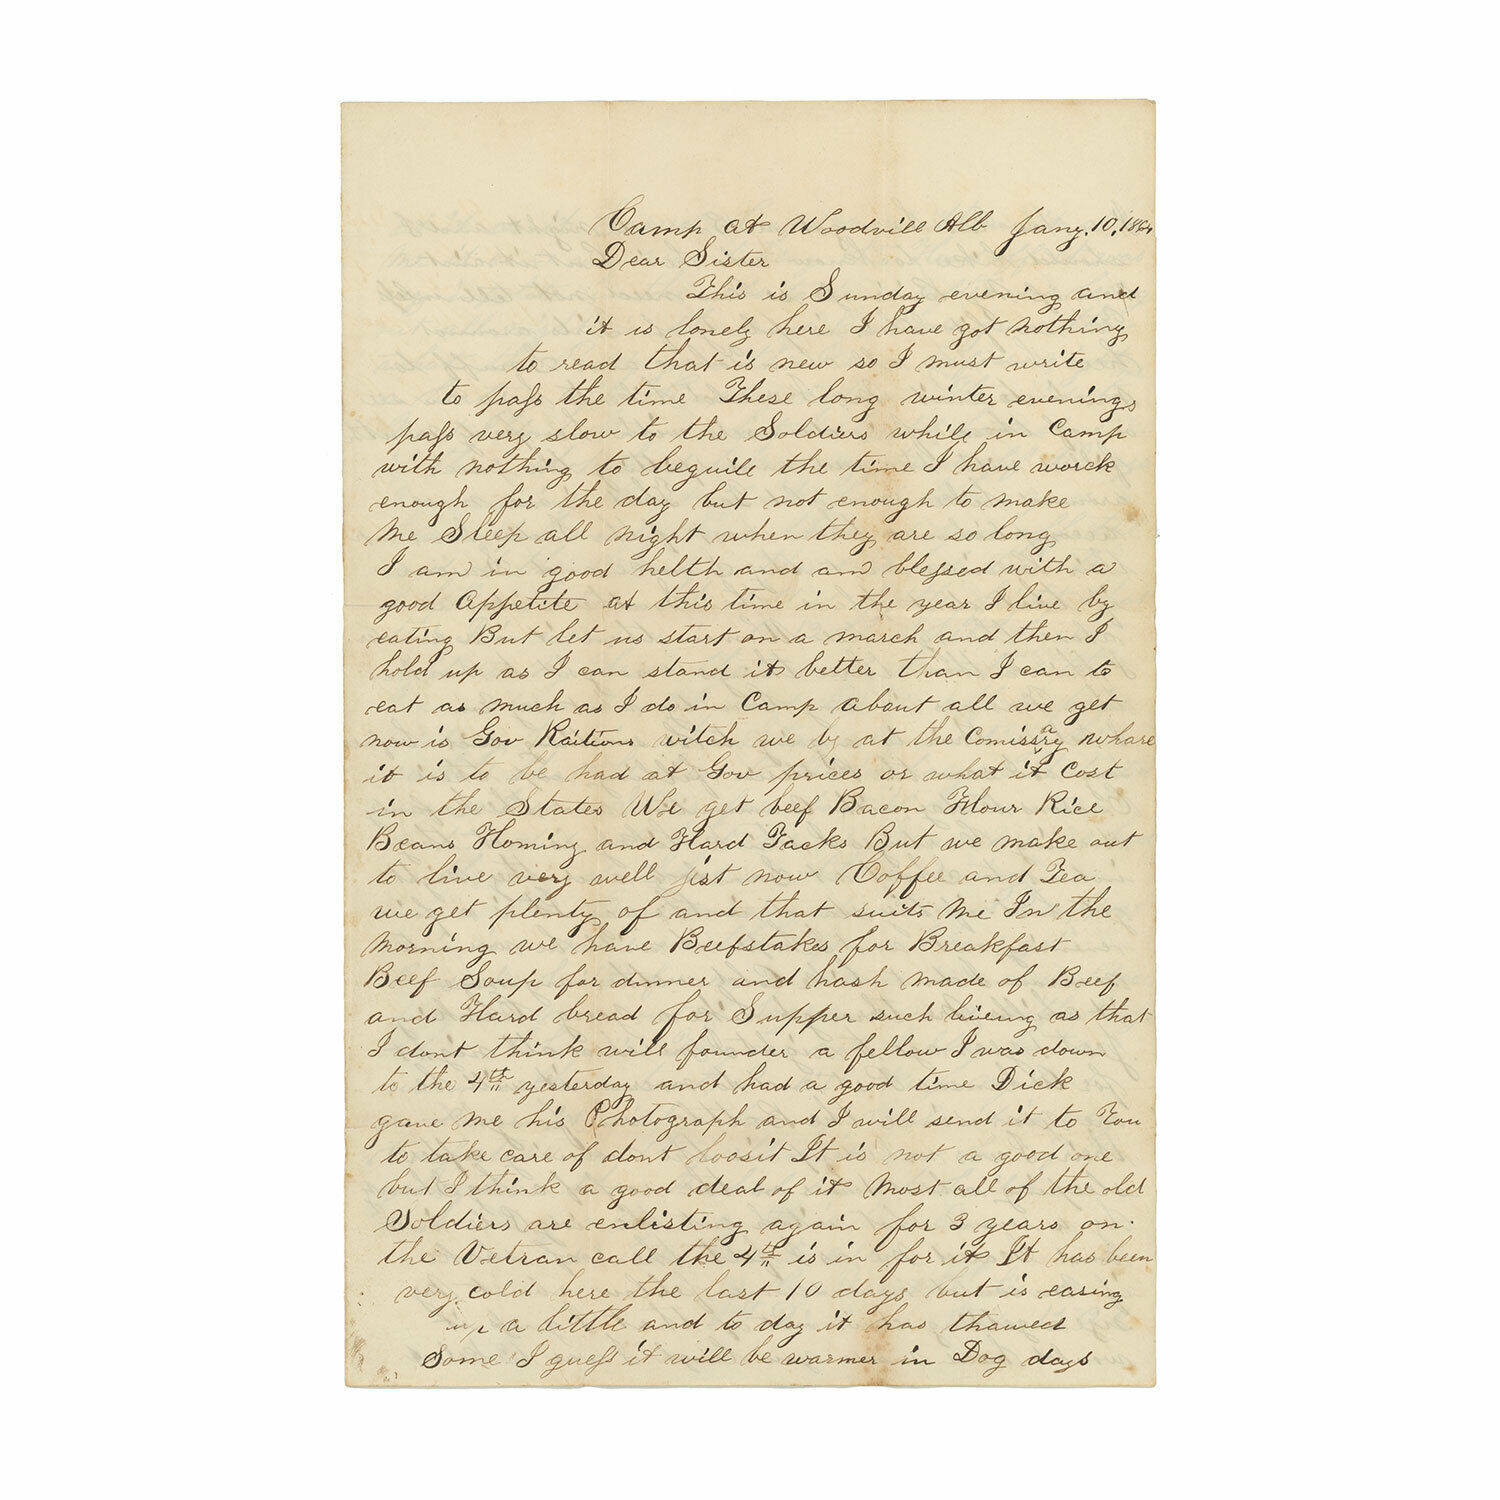 Camp at Woodvill Alb Jany. 10, 1864
Dear Sister
This is Sunday evening and
it is lonely here I have got nothing
to read that is new so I must write
to pass the time These long winter evenings
pass very slow to the Soldiers while in Camp
with nothing to beguile the time I have worck
enough for the day but not enough to make
me Sleep all night when they are so long
I am in good helth and am blessed with a
good Appetite at this time in the year I live by
eating But let us start on a march and then I
hold up as I can stand it better than I can to
eat as much as I do in Camp about all we get
now is Gov Raitions witch we by at the Comissary whare
it is to be had at Gov prices or what it Cost
in the States We get beef Bacon Flour Rice
Beans Hominy and Hard Tacks But we make out
to live very well jist now Coffee and Tea
we get plenty of and that suits me In the
morning we have Beefstakes for Breakfast
Beef Soup for dinner and hash made of Beef
and Hard bread for Supper such liveing as that
I dont think will founder a fellow I was down
to the 4th yesterday and had a good time Dick
gave me his Photograph and I will send it to You
to take care of dont loosit It is not a good one
but I think a good deal of it Most all of the old
Soldiers are enlisting again for 3 years on
the Vetran call the 4th is in for it It has been
very cold here the last 10 days but is easing
up a little and to day it has thawed
Some I guess it will be warmer in Dog days